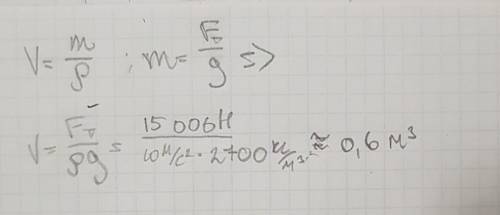 V = m/ρ ; m = Fт/g =>
V = Fт/ρg = 15 006Н / 10 м/с² · 2700 кг/м³ ≈ 0,6 м³